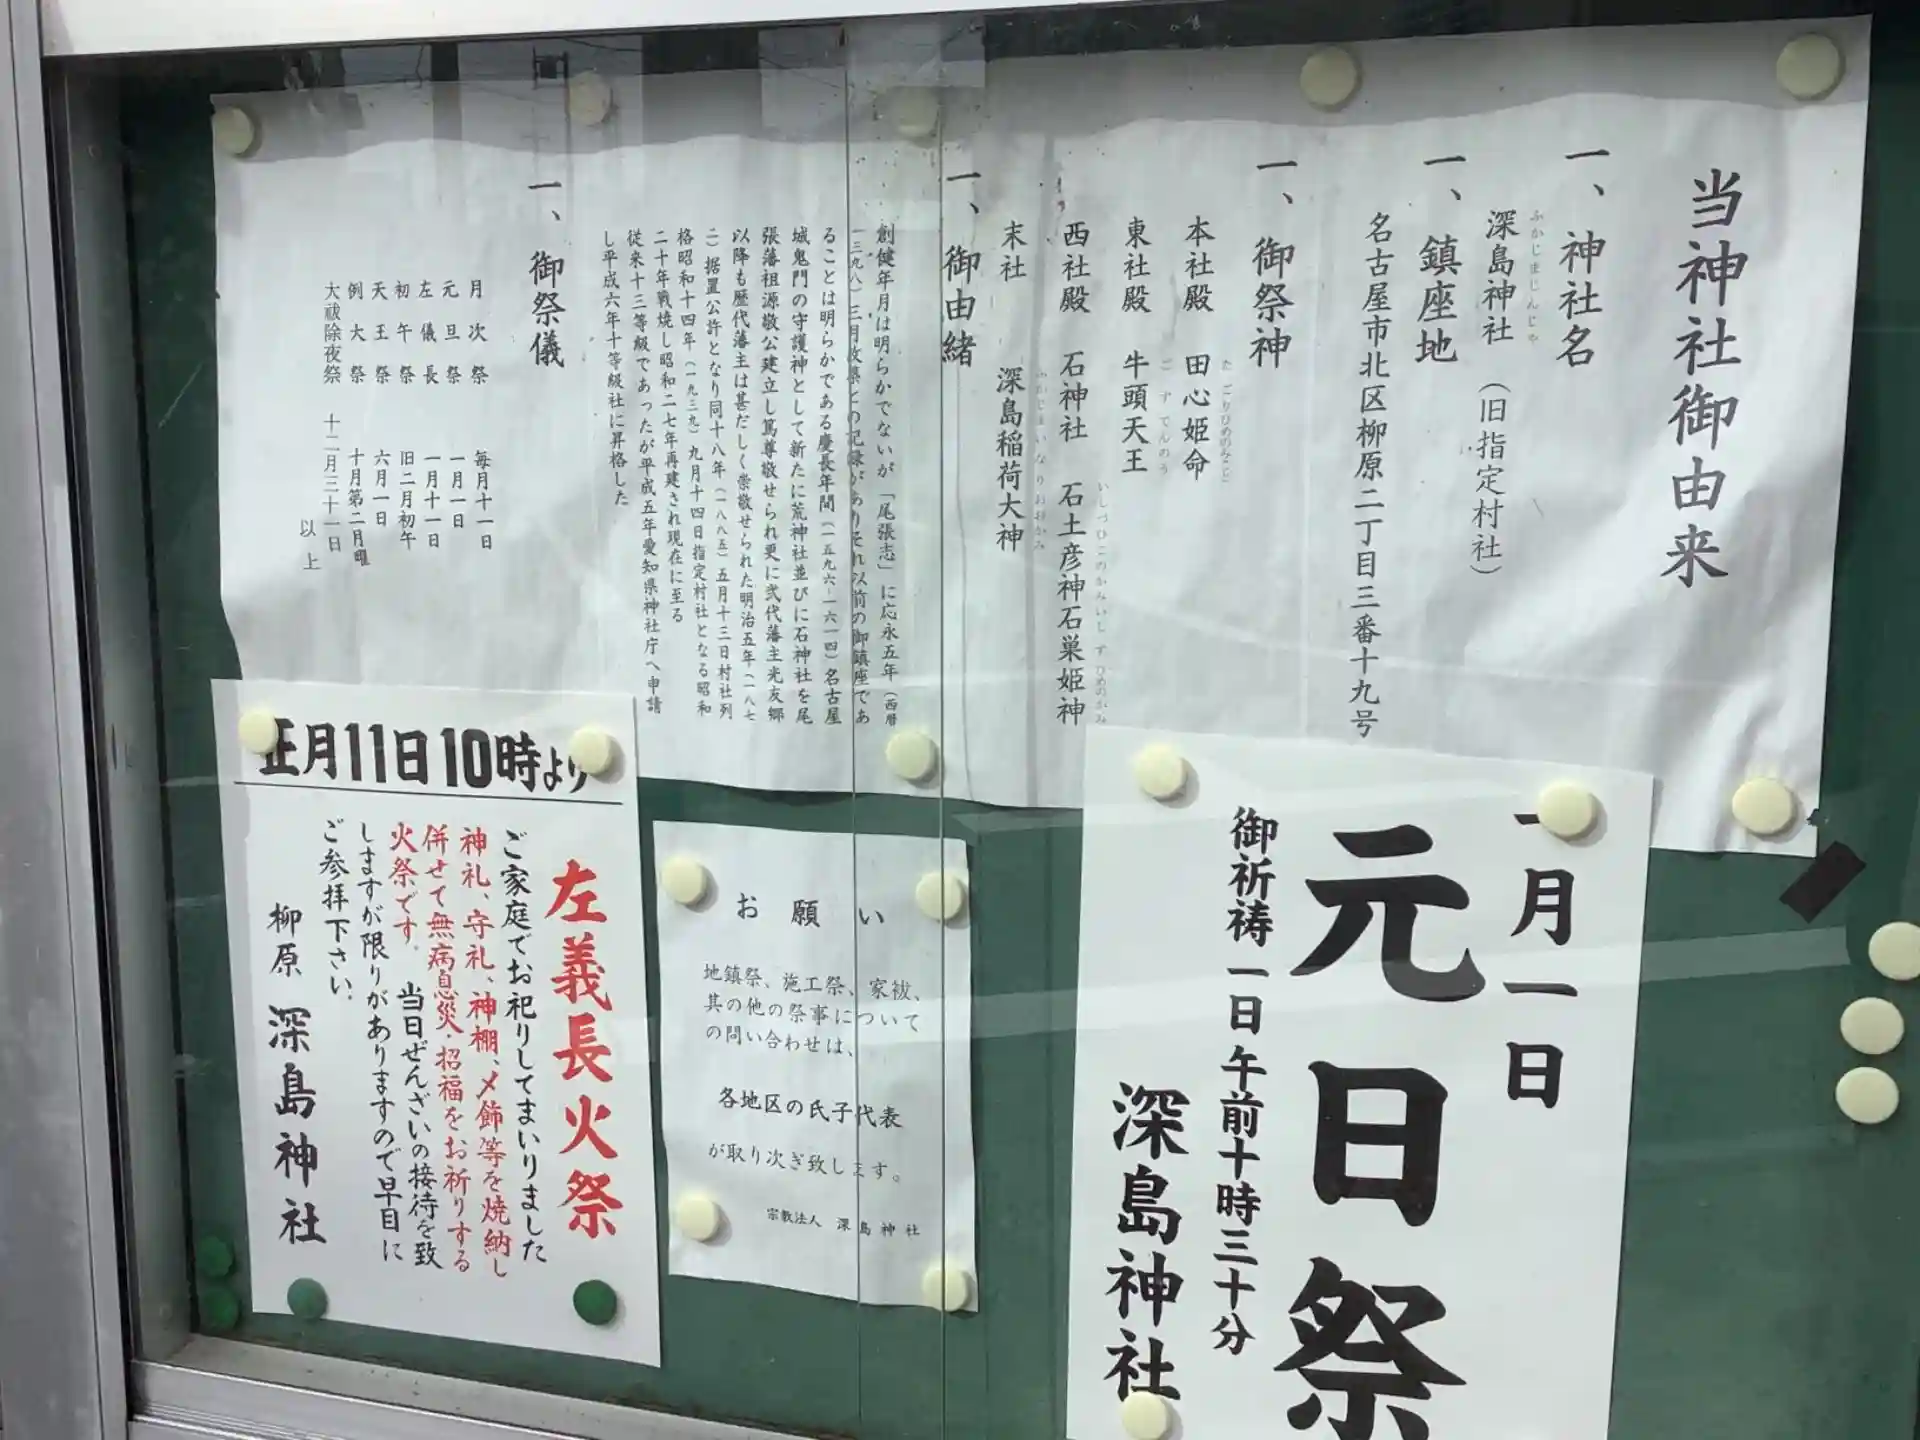 当神社御由来
一、神社名
深島神社 （旧指定村社）
ふかじまじんじゃ
一、鎮座地
名古屋市北区柳原二丁目三番十九号
一、御祭神
本社殿 田心姫命
たごりひめのみこと
東社殿 牛頭天王
ごずてんのう
西社殿 石神社 石土彦神石巣姫神
いしづひこのかみいしずひめのかみ
末社 深島稲荷大神
ふかじまいなりおおかみ
一、御由緒
創健年月は明らかでないが「尾張志」に応永五年（西暦
一三九八）三月改築との記録がありそれ以前の御鎮座であ
ることは明らかである慶長年間（一五九六ー一六一四）名古屋
城鬼門の守護神として新たに荒神社並びに石神社を尾
張藩祖源敬公建立し篤尊敬せられ更に弐代藩主光友郷
以降も歴代藩主は甚だしく崇敬せられた明治五年（一八七
二）据置公許となり同十八年（一八八五）五月十三日村社列
格昭和十四年（一九三九）九月十四日指定村社となる昭和
二十年戦焼し昭和二七年再建され現在に至る
従来十三等級であったが平成五年愛知県神社庁へ申請
し平成六年十等級社に昇格した
一、御祭儀
月次祭 毎月十一日
元旦祭 一月一日
左儀長 一月十一日
初午祭 旧二月初午
天王祭 六月一日
例大祭 十月第二月曜
大祓除夜祭 十二月三十一日
以上
正月11日10時より
左義長火祭
ご家庭でお祀りしてまいりました
神札、守札、神棚、〆飾等を焼納し
併せて無病息災・招福をお祈りする
火祭です。 当日ぜんざいの接待を致
しますが限りがありますので早目に
ご参拝下さい。
柳原 深島神社
お願い
地鎮祭、施工祭、家祓、
其の他の祭事について
の問い合わせは、
各地区の氏子代表
が取り次ぎ致します。
宗教法人 深島神社
一月一日
元日祭
御祈祷 一日午前十時三十分
深島神社